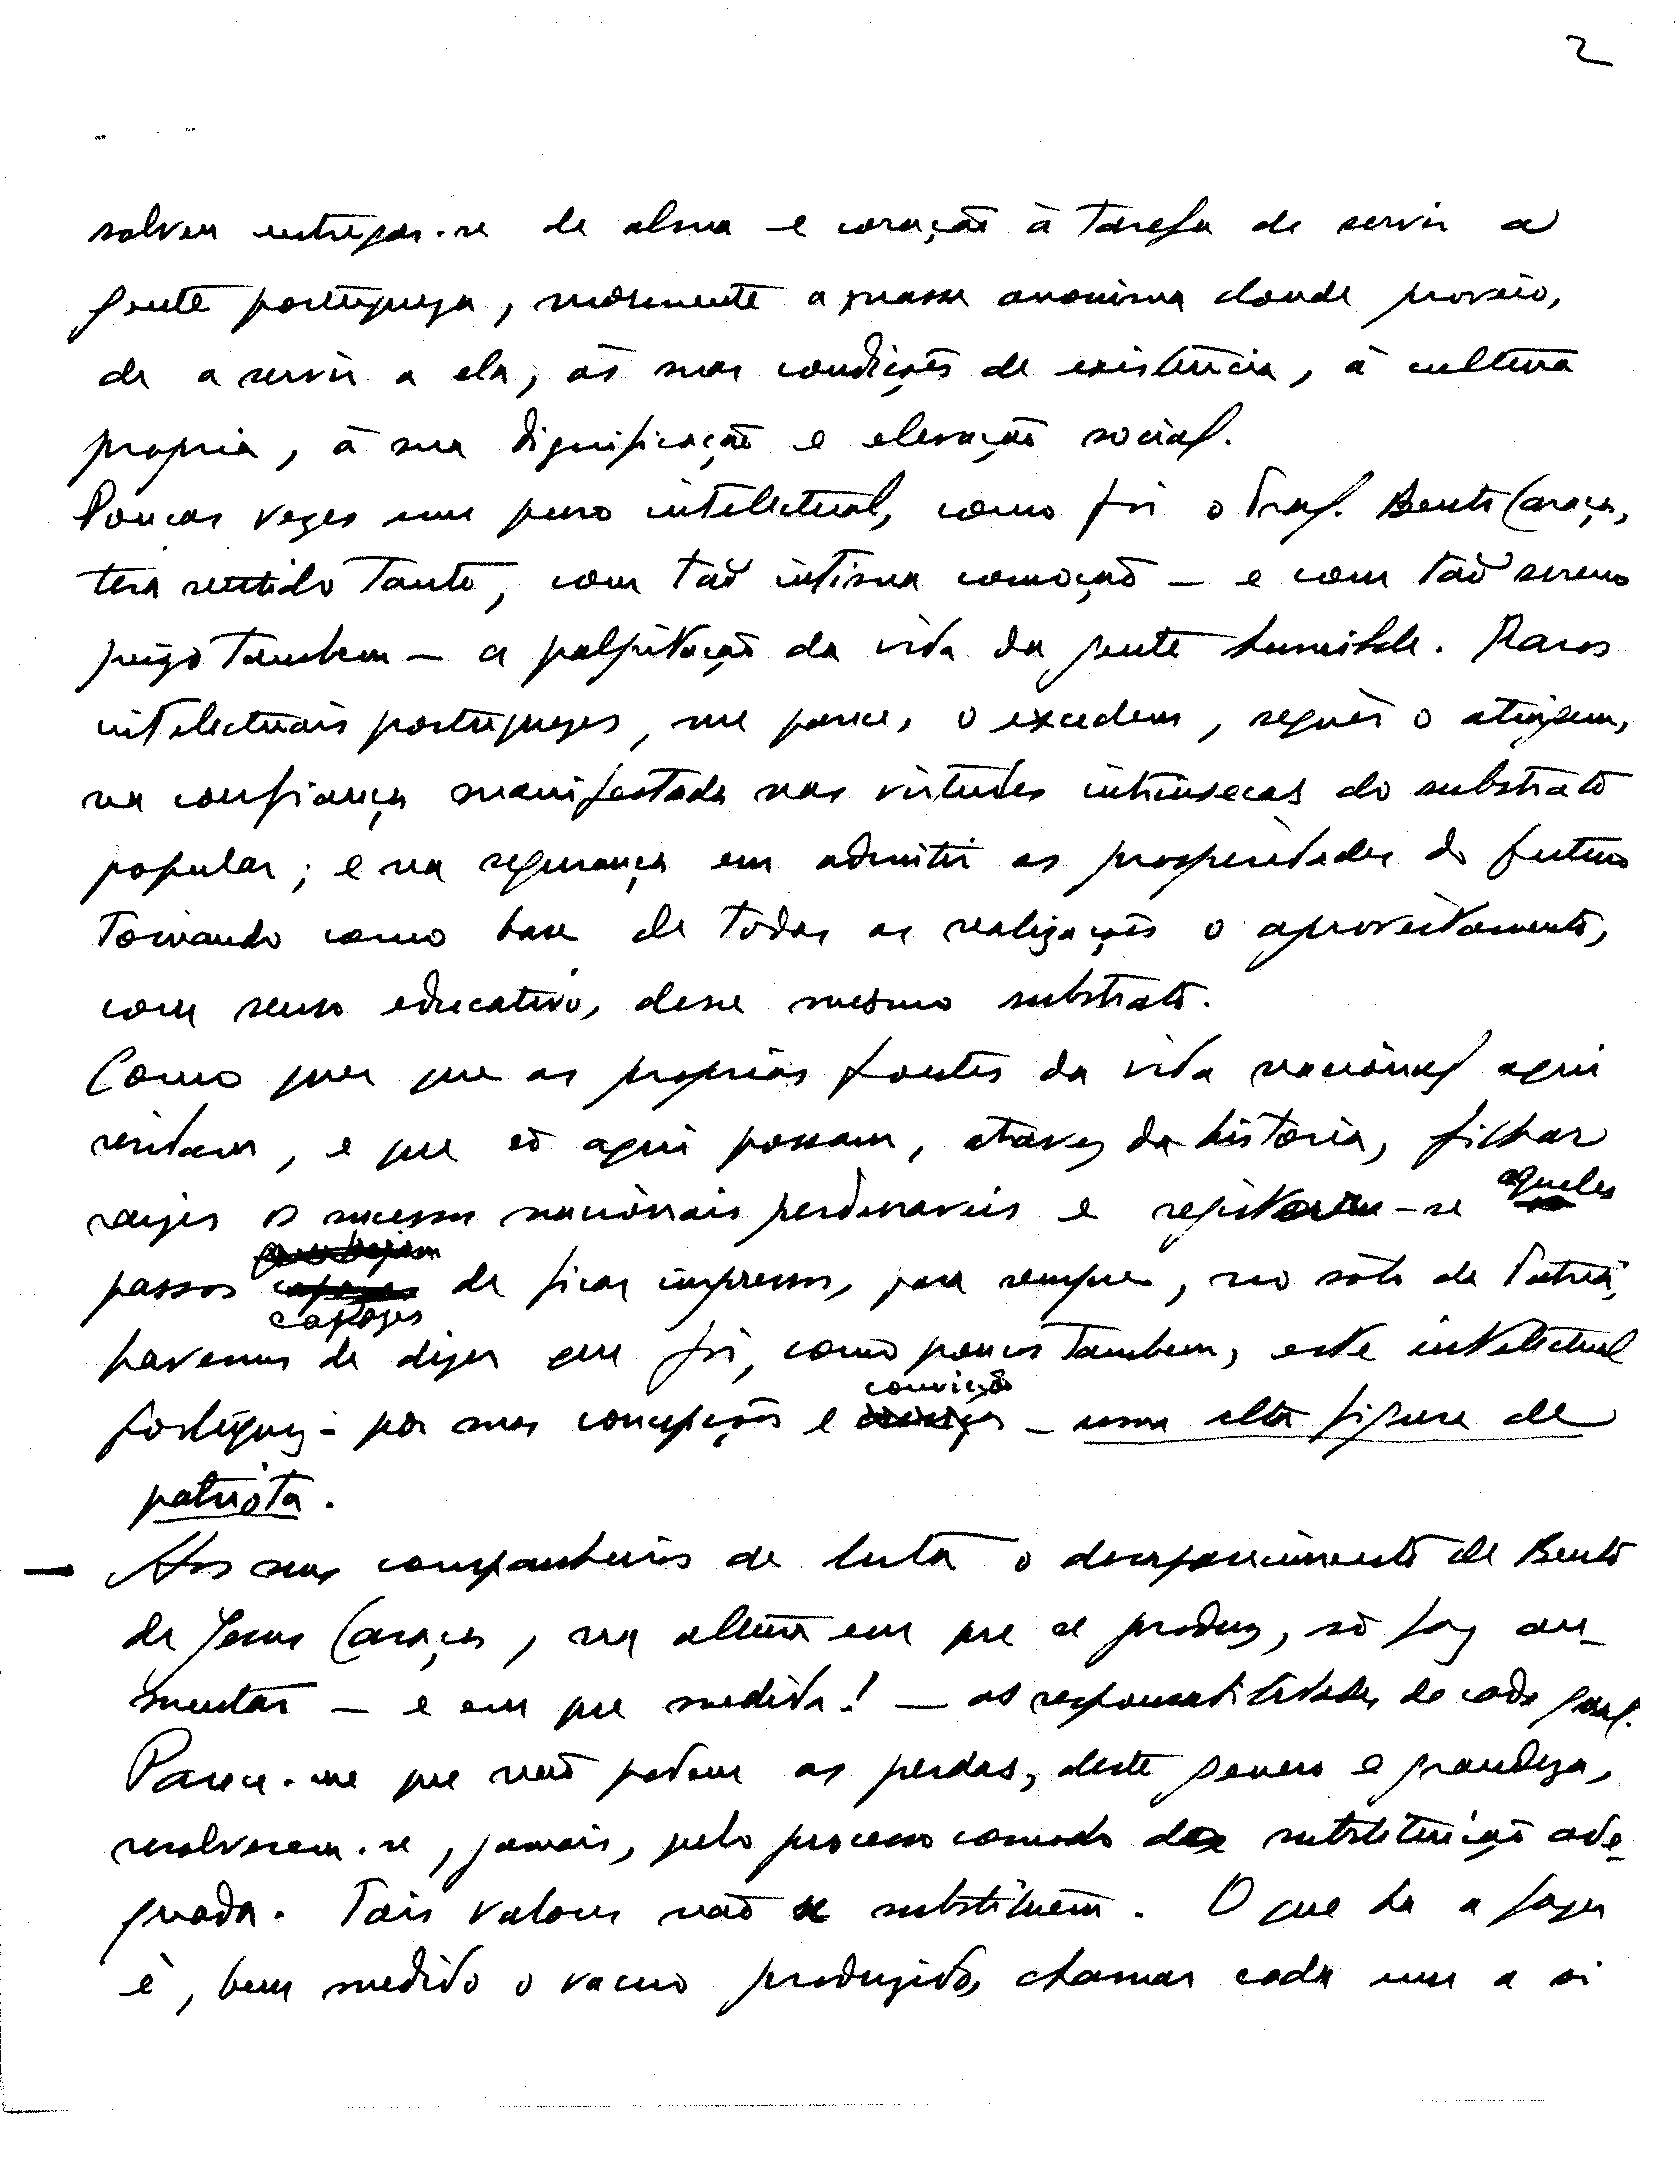 2
solveu entregar-se de alma e coração à tarefa de servir a
gente portugueza, mòrmente a massa anonima donde proveio,
de a servir a ela, às suas condições de existência, à cultura
propria, à sua dignificação e elevação social.
Poucas vezes um puro intelectual, como foi o Prof. Bento Caraça,
terá sentido tanto, com tão intima comoção — e com tão sereno
juizo tambem — a palpitação da vida da gente humilde. Raros
intelectuais portuguezes, me parece, o excedem, sequer o atingem,
na confiança manifestada nas virtudes intrinsecas do substrato
popular; e na segurança em admitir as prosperidades do futuro
tomando como base de todas as realizações o aproveitamento,
com senso educativo, desse mesmo substrato.
Como quer que as proprias fontes da vida nacional aqui
residam, e que só aqui possam, atravez da história, filhar
raizes os sucessos nacionais perduraveis e registarem-se aqueles
passos capazes de ficar impressos, para sempre, no solo da Patria,
havemos de dizer que foi, como poucos tambem, este intelectual
portuguez - por suas concepções e convicção — uma alta figura de
patriota.
— Aos seus companheiros de luta o desaparecimento de Bento
de Jesus Caraça, na altura em que se produz, só faz au-
mentar — e em que medida! — as responsabilidades de cada qual.
Parece-me que não podem as perdas, deste genero e grandeza,
resolverem-se, jamais, pelo processo comodo da substituição ade-
quada. Tais valores não se substituem. O que ha a fazer
é, bem medido o vacuo produzido, chamar cada um a si